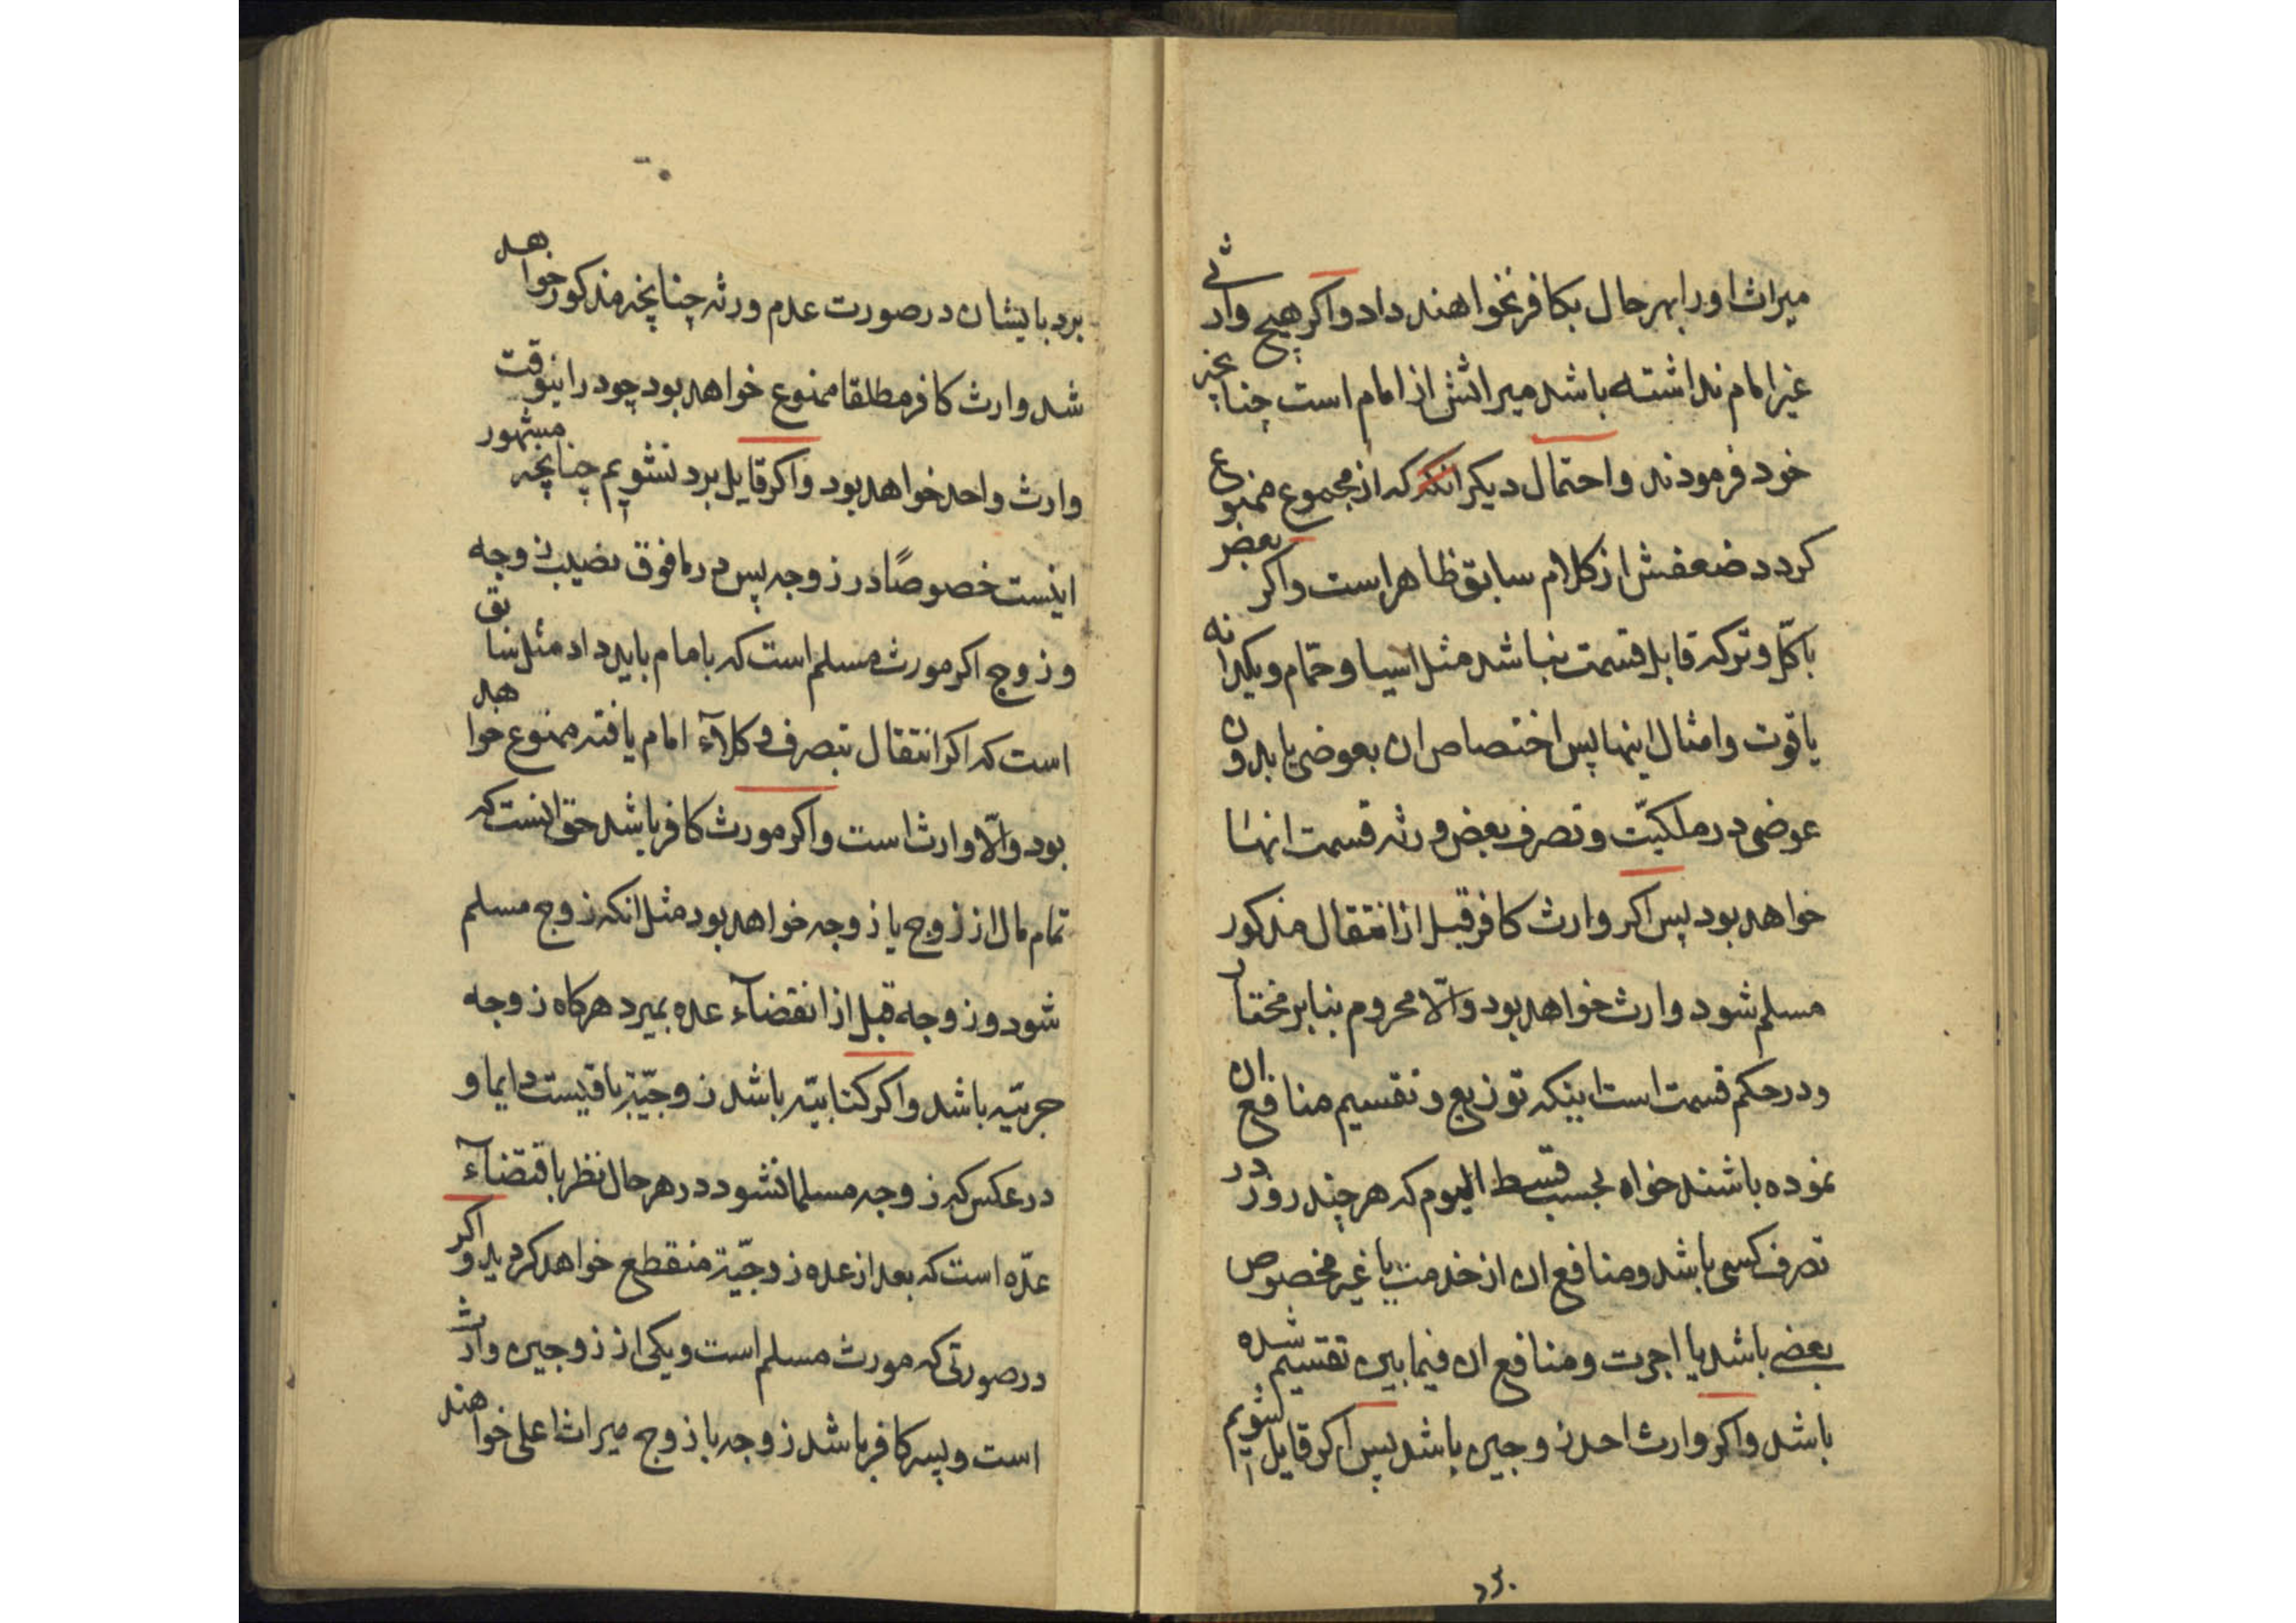 میراث او را بهر حال بکافر نخواهند داد و اکر هیچ وارثی
غیر امام نداشته باشد میراثش از امام است چنانچه
خود فرمودند و احتمال دیکر انکه که از مجموع ممنوع
کردد ضعفش از کلام سابق ظاهر است و اکر بعض
یا کل و ترکه قابل قسمت نباشد مثل اسیا و حمّام و یکدانه
یاقوت و امثال اینها پس اختصاص ان بعوضی یا بدون
عوضی در ملکیّت و تصرف بعض ورثه قسمت انها
خواهد بود پس اکر وارث کافر قبل از انتقال مذکور
مسلم شود وارث خواهد بود و الّا محروم بنا بر مختار
و در حکم قسمت است اینکه توزیع و تقسیم منافع ان
نموده باشند خواه بحسب قسط الیوم که هر چند روز در
تصرف کسی باشد و منافع ان از خدمت یا غیر مخصوص
بعضی باشد یا اجرت و منافع ان فیما بین تقسیم شده
باشد و اکر وارث احد زوجین باشد پس اکر قایل شویم
برد بایشان در صورت عدم ورثه چنانچه مذکور خواهد
شد وارث کافر مطلقا ممنوع خواهد بود چود در اینوقت
وارث واحد خواهد بود و اکر قایل برد نشویم چنانچه مشهور
اینست خصوصًا در زوجه پس در ما فوق نصیب زوجه
و زوج اکر مورث مسلم است که بامام باید داد مثل سابق
است که اکر انتقال بتصرف وکلآء امام یافته ممنوع خواهد
بود و الّا وارث است و اکر مورث کافر باشد حق انست که
تمام مال از زوج یا زوجه خواهد بود مثل انکه زوج مسلم
شود و زوجه قبل از انقضآء عده بمیرد هرکاه زوجه
حربیّه باشد و اکر کتابیّه باشد زوجیّة باقیست دایما و
در عکس که زوجه مسلمان شود در هر حال نظر باقتضآء
عدّه است که بعد از عده زوجیّة منقطع خواهد کردید و اکر
در صورتی که مورث مسلم است و یکی از زوجین وارث
است و پسر کافر باشد زوجه یا زوج میراث اعلی خواهند